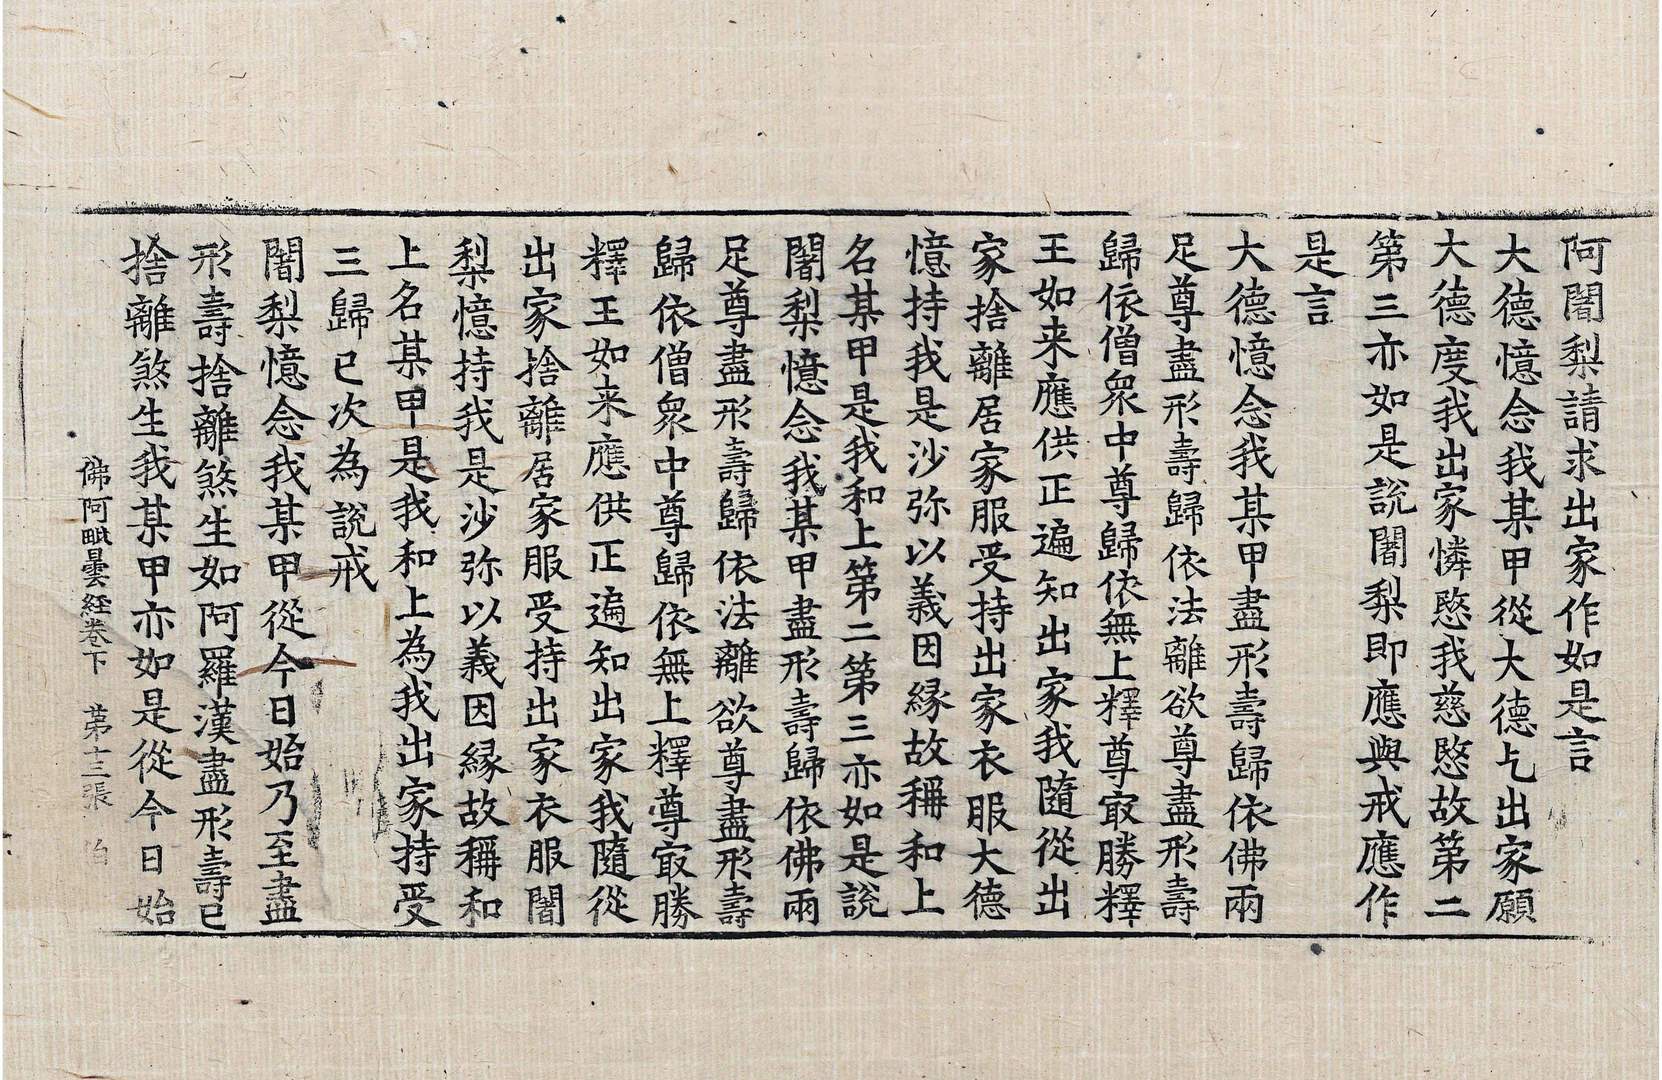 阿闍梨請求出家作如是言
大德憶念我某甲從大德乞出家願
大德度我出家憐愍我慈愍故第二
第三亦如是說闍梨即應與戒應作
是言
大德憶念我某甲盡形壽歸依佛兩
足尊盡形壽歸依法離欲尊盡形壽
歸依僧衆中尊歸依無上釋尊㝡勝釋
王如来應供正遍知出家我隨從出
家捨離居家服受持出家衣服大德
憶持我是沙弥以義因縁故稱和上
名某甲是我和上第二第三亦如是說
闍梨憶念我某甲盡形壽歸依佛兩
足尊盡形壽歸依法離欲尊盡形壽
歸依僧衆中尊歸依無上釋尊㝡勝
釋王如来應供正遍知出家我隨從
出家捨離居家服受持出家衣服闍
梨憶持我是沙弥以義因縁故稱和
上名某甲是我和上為我出家持受
三歸已次為說戒
闍梨憶念我某甲從今日始乃至盡
形壽捨離煞生如阿羅漢盡形壽已
捨離煞生我某甲亦如是從今日始
佛阿毗曇経卷下 苐十三張